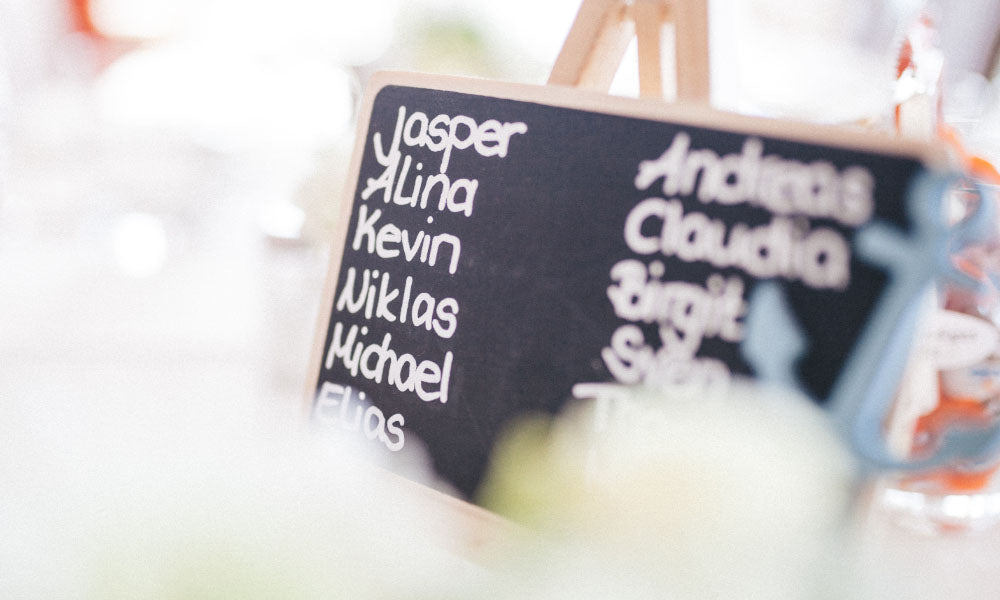 Jasper
Alina
Kevin
Niklas
Michael
Elias
Andreas
Claudia
Birgit
Sven